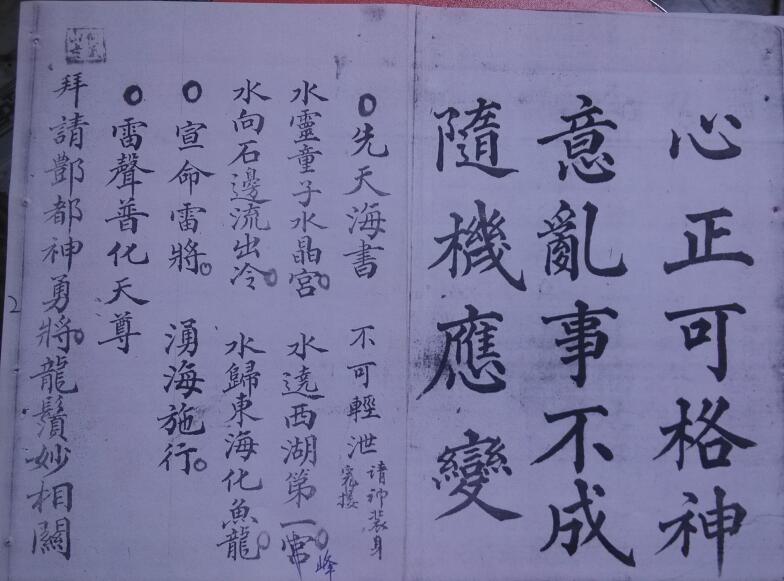 心正可格神
意亂事不成
隨機應變
先天海書 不可輕泄 请神裝身
水靈童子水晶宮 水遶西湖第一宮 峰
水向石邊流出冷 水歸東海化魚龍
宣命雷將 湧海施行
雷聲普化天尊
拜請酆都神勇將龍鬚妙相關
2